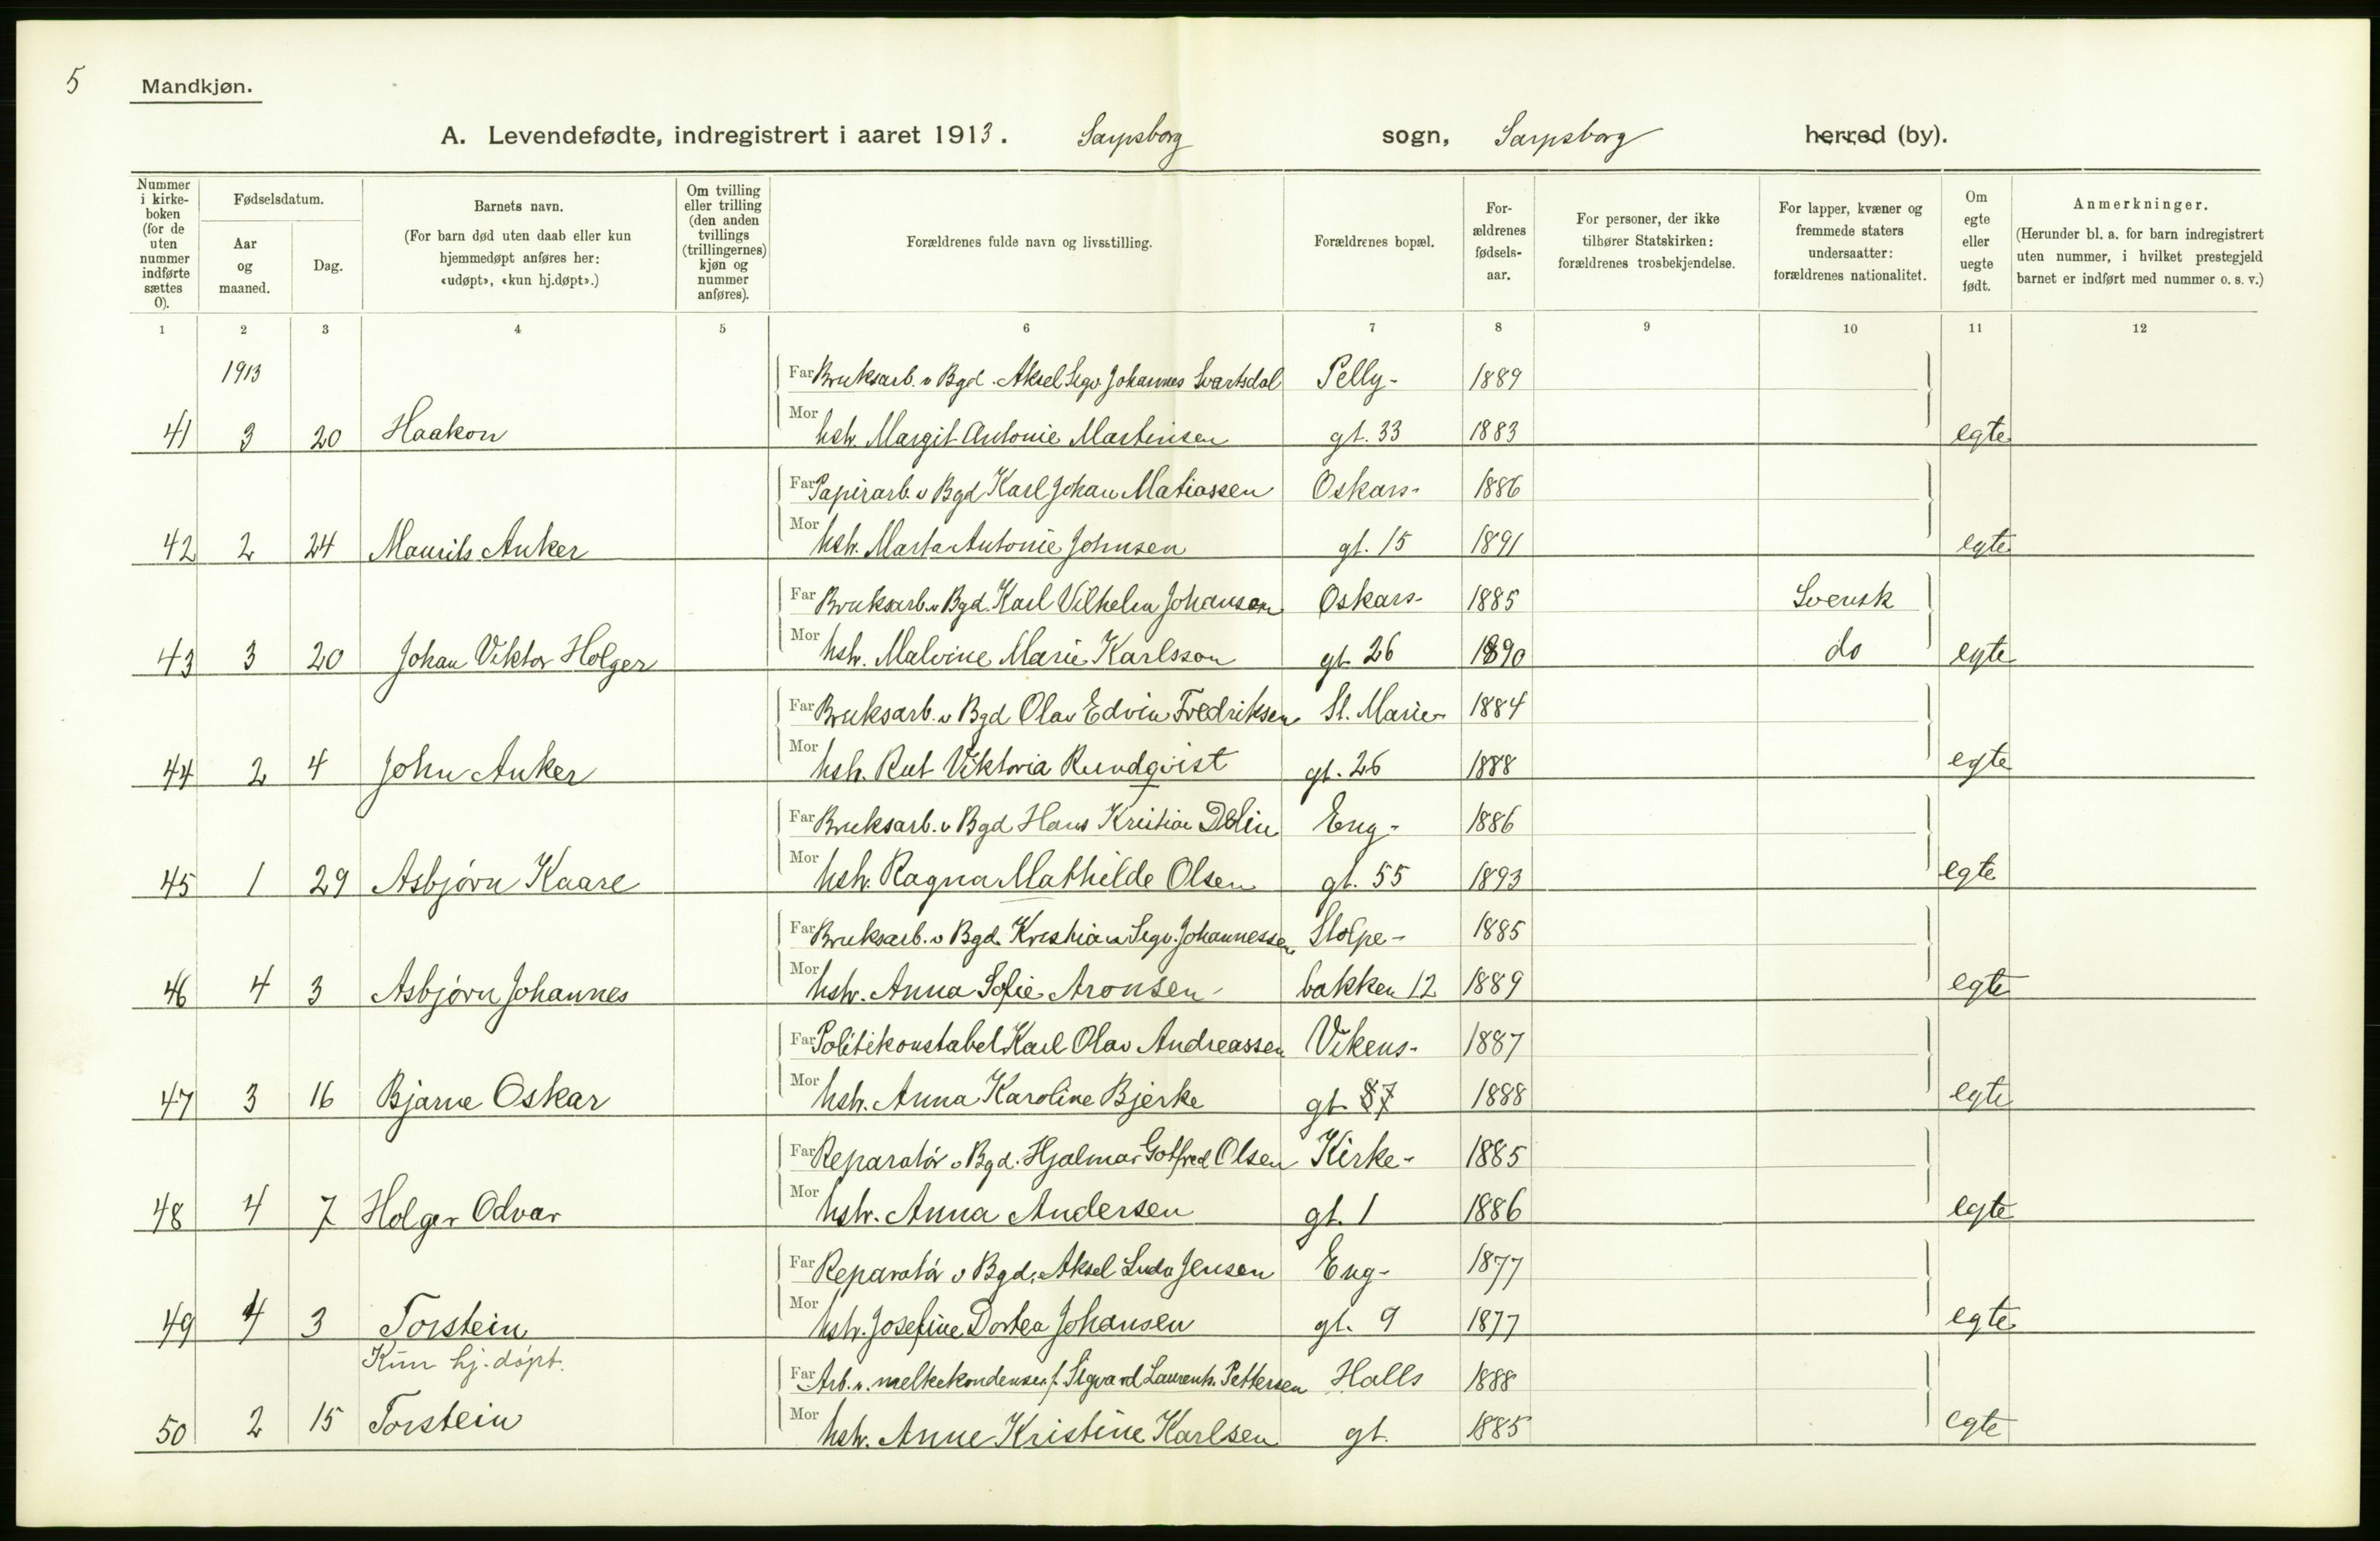 5
Mandkjøn.
A. Levendefødte, indregistrert i aaret 1913. Sarpsborg sogn, Sarpsborg herred (by).
Nummer i kirkeboken (for de uten nummer indførte sættes 0).
Fødselsdatum.
Aar og maaned.
Dag.
Barnets navn.
(For barn død uten daab eller kun hjemmedøpt anføres her: «udøpt», «kun hj.døpt».)
Om tvilling eller trilling (den anden tvillings (trillingernes) kjøn og nummer anføres).
Forældrenes fulde navn og livsstilling.
Forældrenes bopæl.
Forældrenes fødselsaar.
For personer, der ikke tilhører Statskirken: forældrenes trosbekjendelse.
For lapper, kvæner og fremmede staters undersaatter: forældrenes nationalitet.
Om egte eller uegte født.
Anmerkninger.
(Herunder bl. a. for barn indregistrert uten nummer, i hvilket prestegjeld barnet er indført med nummer o. s. v.)
1 2 3 4 5 6 7 8 9 10 11 12
1913 Far Bruksarb. v Bgd. Aksel Sigv. Johannes Svartsdal Pelly- 1889
41 3 20 Haakon Mor hstr. Margit Antonie Martinsen gt. 33 1883 egte
Far Papirarb. v Bgd Karl Johan Matiassen Oskars- 1886
42 2 24 Maurits Anker Mor hstr. Marta Antonie Johnsen gt. 15 1891 egte
Far Bruksarb. v Bgd. Karl Vilhelm Johansson Oskars- 1885 Svensk
43 3 20 Johan Viktor Holger Mor hstr. Malvine Marie Karlsson gt 26 1890 do egte
Far Bruksarb. v Bgd Olav Edvin Fredriksen St. Marie- 1884
44 2 4 John Anker Mor hstr. Rut Viktoria Rundqvist gt. 26 1888 egte
Far Bruksarb. v Bgd Hans Kristian Eng- 1886
45 1 29 Asbjørn Kaare Mor hstr. Ragna Mathilde Olsen gt. 55 1893 egte
Far Bruksarb. v Bgd. Kristian Sigv. Johannessen Stolpe- 1885
46 4 3 Asbjørn Johannes Mor hstr. Anna Sofie Aronsen bakken 12 1889 egte
Far Politikonstabel Karl Olav Andreassen Vikens- 1887
47 3 16 Bjarne Oskar Mor hstr. Anna Karoline Bjerke gt 1888 egte
Far Reparatør v Bgd. Hjalmar Gotfred Olsen Kirke- 1885
48 4 7 Holger Odvar Mor hstr. Anna Andersen gt. 1 1886 egte
Far Reparatør v Bgd. Aksel Ludv Jensen Eng- 1877
49 4 3 Torstein Mor hstr. Josefine Dortea Johansen gt. 9 1877 egte
Kun hj. døpt. Far Arb. v. melkekondenser.f. Sigvard Laurents. Pettersen Halls 1888
50 2 15 Torstein Mor hstr. Anne Kristine Karlsen gt. 1885 egte